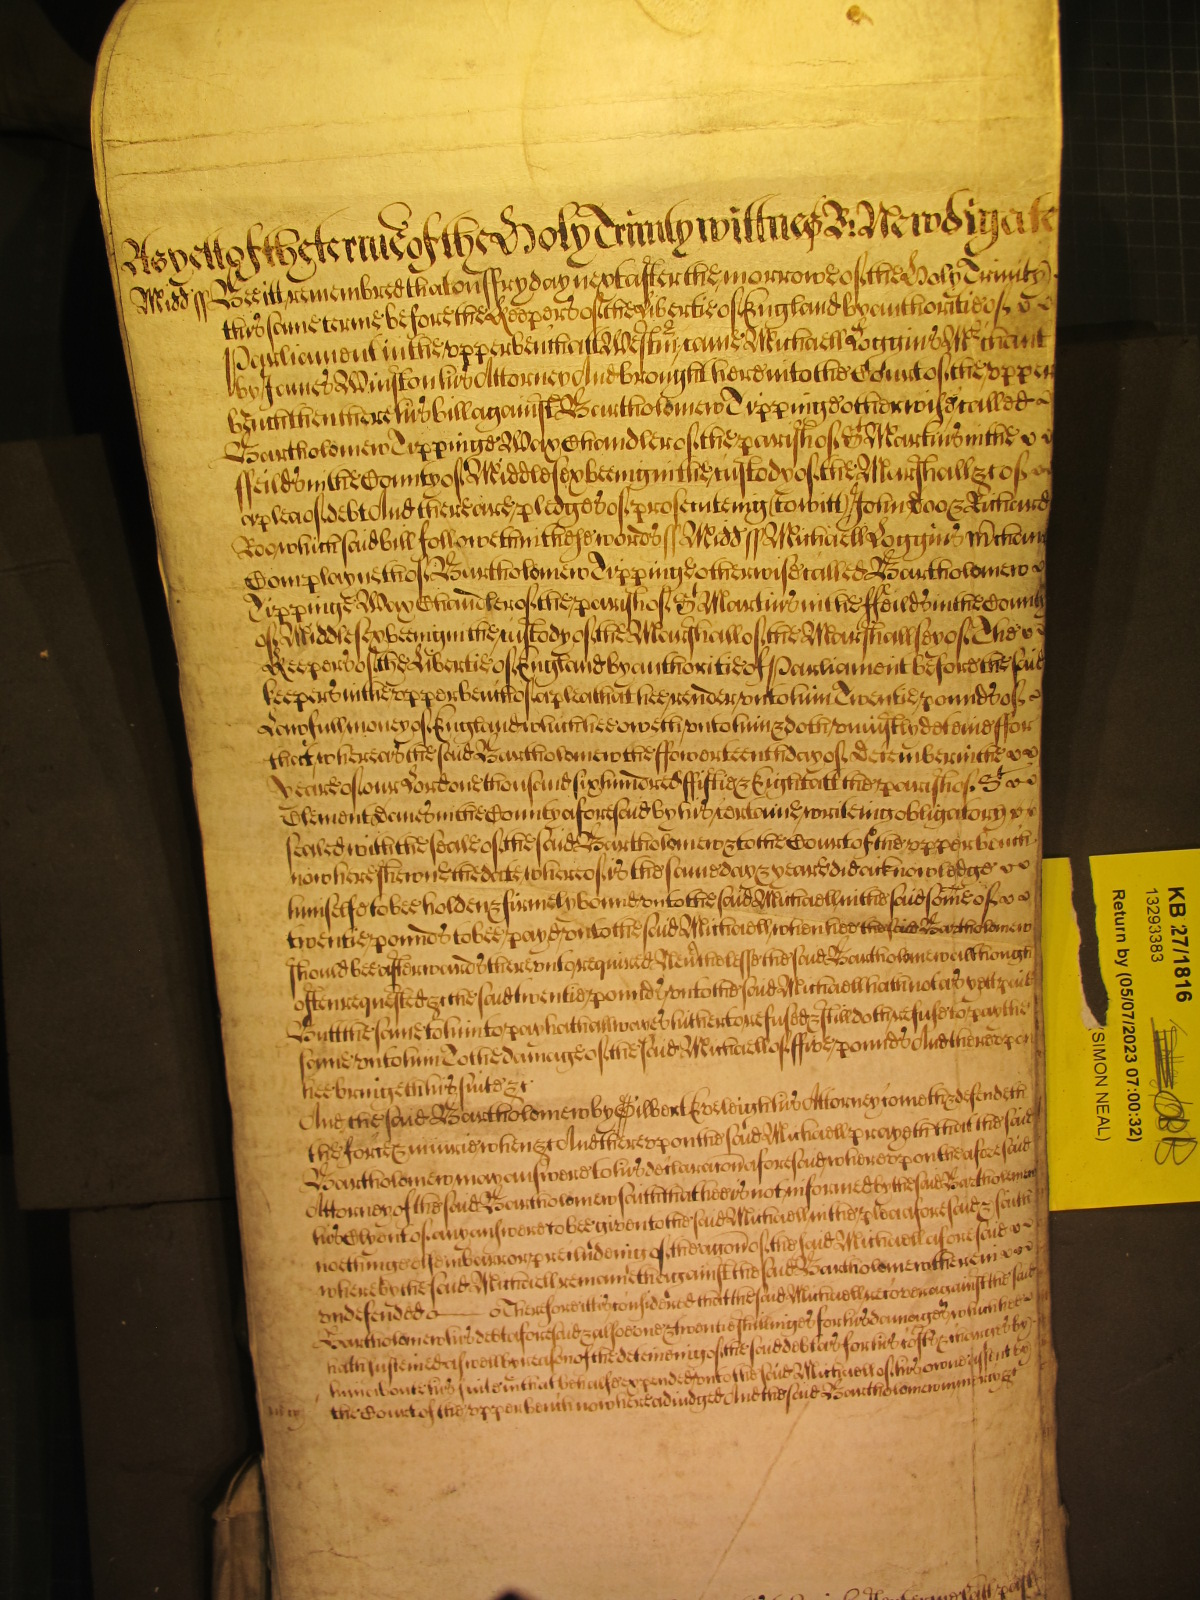 As yett of the terme of the Holy Trinity wittnes R: Newdigate
Midd ss Bee itt remembred that on ffryday next after the morrowe of the Holy Trinity
this same terme before the Keepers of the libertie of England by authoritie of
Parliament in the upper bench att Westmr came Michaell Loggins Mrchant
by James Winston his Attorney And brought here into the Court of the upper
bench then there his bill against Bartholomew Tippinge otherwise called
Bartholomew Tippinge Wax Chandler of the parish of St Martins in the
ffeilds in the County of Middlesex beeing in the custody of the Marshall &c of
a plea of debt And there are pledges of prosecuteing (to witt) John Doo & Richard
Roo which said bill followeth in these words ss Midd ss Michaell Loggins Mrchant
Complayneth of Bartholomew Tippinge otherwise called Bartholomew
Tippinge Wax Chandler of the parish of St Martins in the ffeilds in the County
of Middlesex beeing in the custody of the Marshall of the Marshallsey of The
Keepers of the libertie of England by authoritie of Parliament before the said
keepers in the upper bench of a plea that hee render unto him Twentie pounds of
Lawfull money of England which hee oweth unto him & doth uniustly deteine ffor
that whereas the said Bartholomew the ffowerteenth day of December in the
yeare of our Lord one thousand six hundred ffiftie & Eight att the parish of St
Clement Danes in the County aforesaid by his certaine writeing obligatory
sealed with the seale of the said Bartholomew & to the Court of the upper bench
now here shewne the date whereof is the same day & yeare did acknowledge
himselfe to bee holden & firmely bound unto the said Michaell in the said some of
twentie pounds to bee payd unto the said Michaell when hee the said Bartholomew
should bee afterwards thereunto required Nevrthelesse the said Bartholomew allthough
often requested &c the said twentie pounds unto the said Michaell hath not as yett paid
Butt the same to him to pay hath allwayes hitherto refused & still doth refuse to pay the
same unto him To the damage of the said Michaell of ffive pounds And thereupon
hee bringeth his suite &c
And the said Bartholomew by Gilbert Eveleigh his Attorney cometh & defendeth
the force & iniurie when &c And thereupon the said Michaell prayeth that the said
Bartholomew may answere to his declaracon aforesaid whereupon the aforesaid
Attorney of the said Bartholomew saith that hee is not informed by the said Bartholomew
his Clyent of any answere to bee given to the said Michaell in the plea aforesaid & saith
nothinge else in barr or precludeing of the accon of the said Michaell aforesaid
whereby the said Michaell remaineth against the said Bartholomew therein
undefended Therefore itt is considered that the said Michaell recover against the said
Bartholomew his debt aforesaid & alsoe one & twentie shillinges for his damages which hee
hath susteined aswell by reason of the deteineing of the said debt as for his costs & charges by
him about his suite in that behalfe expended unto the said Michaell of his owne assent by
the Court of the upper bench now here adiudged And the said Bartholomew in mercy &c
KB 27/1816
13293383
Return by (05/07/2023 07:00:32)
(SIMON NEAL)